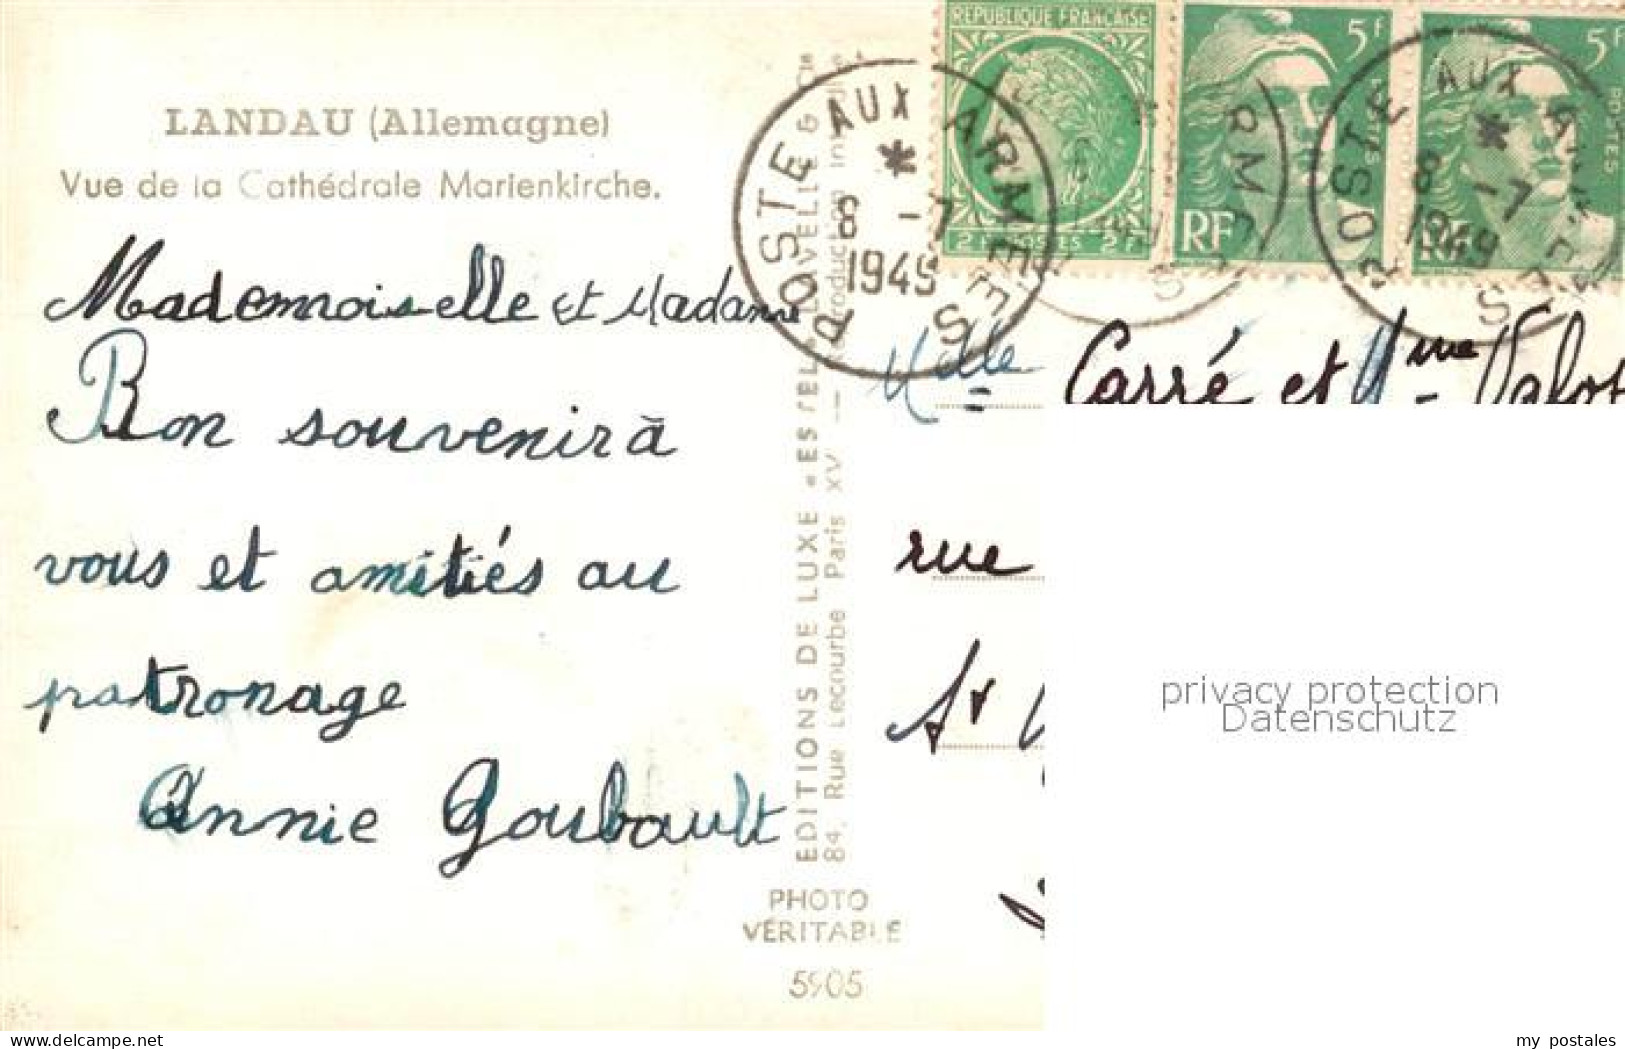 LANDAU (Allemagne)
Vue de la Cathédrale Marienkirche.
Mademoiselle et Madame
Bon souvenir à
vous et amitiés au
patronage
Annie Goubault
EDITIONS DE LUXE « ESTEL » LAVELLE & Cie
84, Rue Lecourbe Paris XV — Reproduction Interdite
PHOTO
VÉRITABLE
5905
REPUBLIQUE FRANÇAISE
2F POSTES 2F
5F
POSTES
RF
5F
POSTES
RF
POSTE AUX ARMEES
*
8 -7
1949
POSTE AUX ARMEES
*
8 -7
1949
Melle Carré et Mme Valot
rue
St
privacy protection
Datenschutz
www.delcampe.net
my_postales